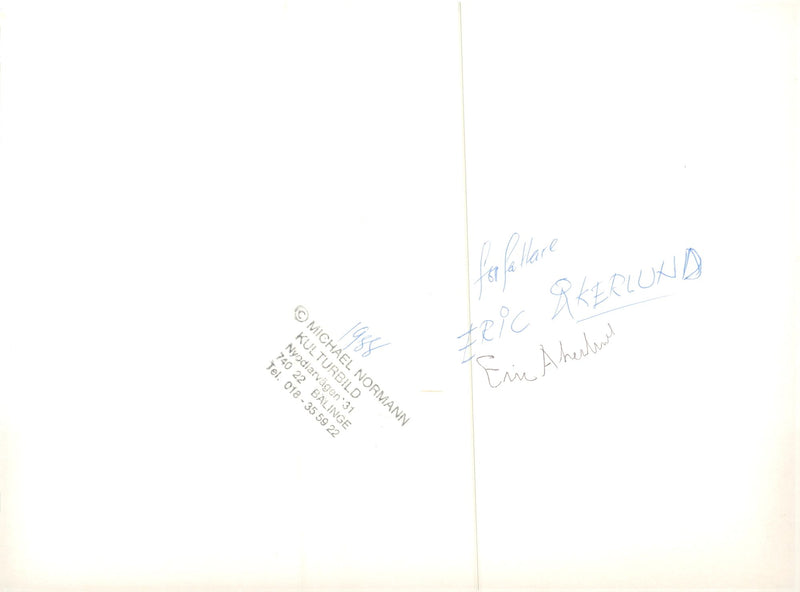 © MICHAEL NORMANN
KULTURBILD
31
740 22 BÄLINGE
Tel. 018 - 35 59 22
1988
författare
ERIC ÅKERLUND
Eric Åkerlund